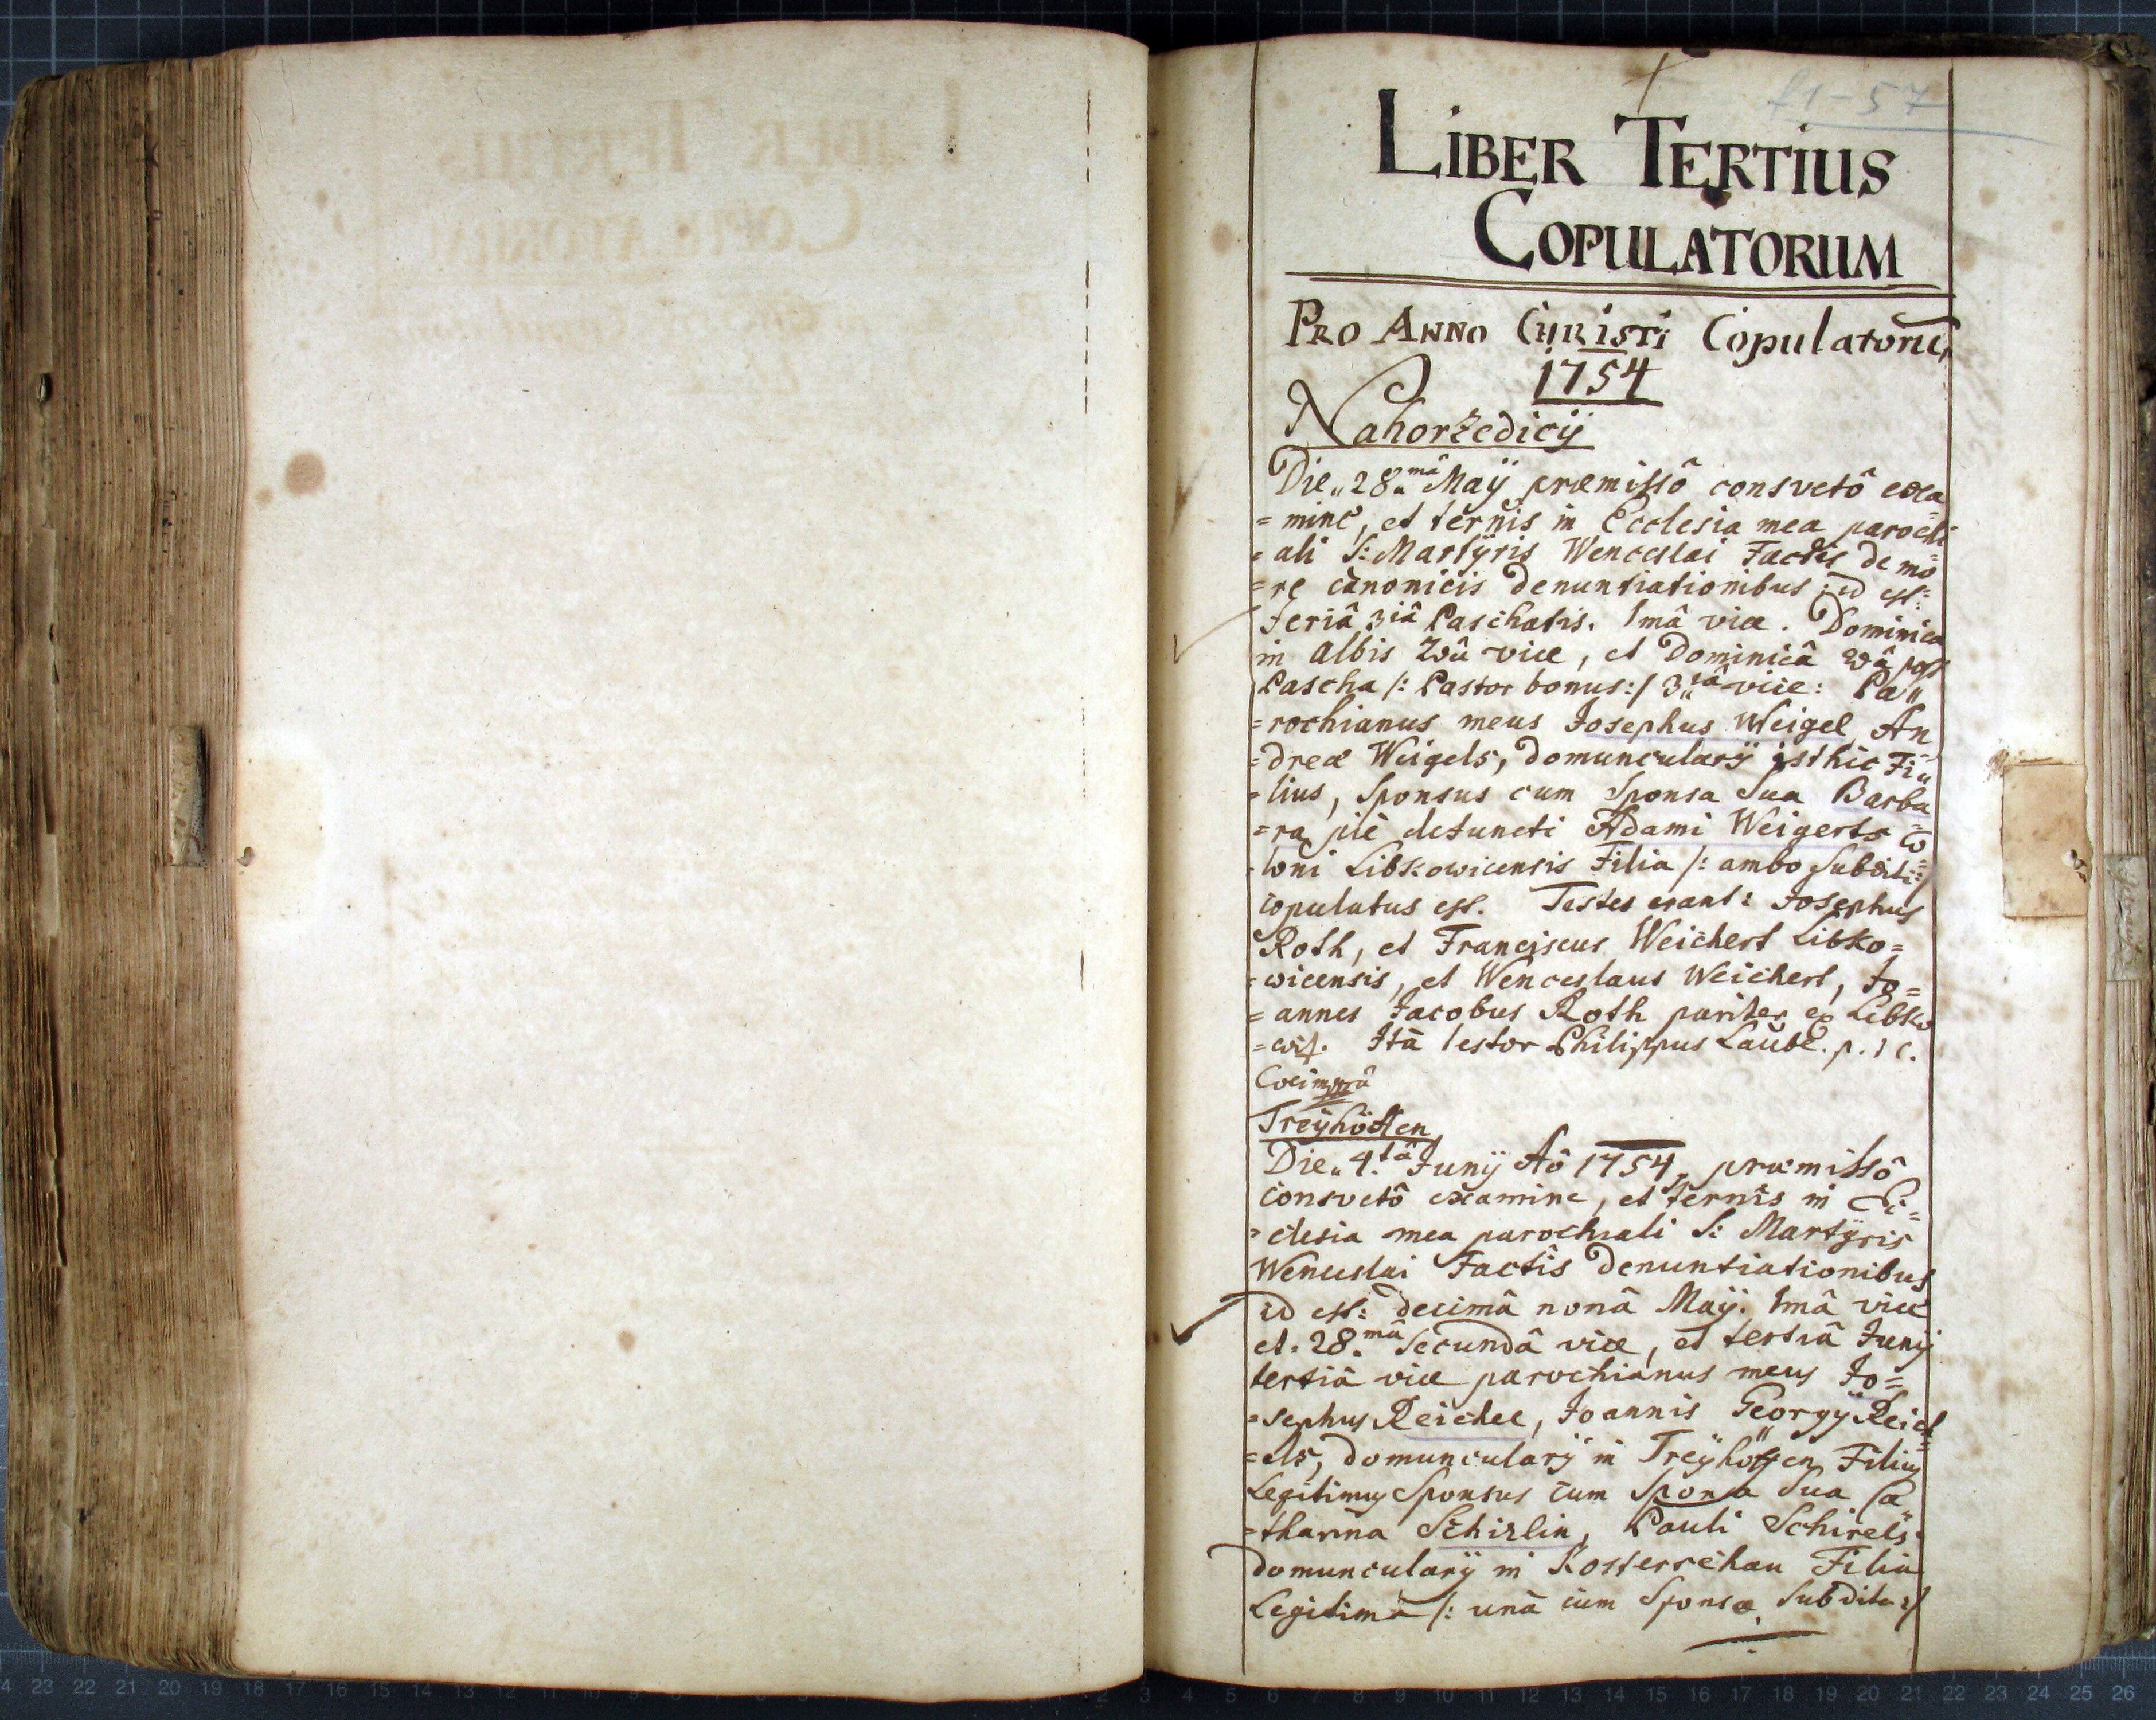 f1-57
LIBER TERTIUS
COPULATORUM
PRO ANNO CHRISTI Copulatorũ
1754
Nahoržedicÿ
Die „28.mâ Maÿ præmissô consvetô exa=
=mine, et ternis in Ecclesia mea parochi
=ali S: Martÿris Wenceslai Factis de mo=
=re canonicis denuntiationibus: id est:
Feriâ 3iâ Paschatis. 1mâ vice. Dominica
in Albis 2dâ vice, et Dominicâ 2dâ post
Pascha /: Pastor bonus:/ 3.iâ vice: Pa„
=rochianus meus Josephus Weigel An
=dreæ Weigels, domuncularÿ isthic Fi„
=lius, Sponsus cum Sponsa Sua Barba
=ra piè defuncti Adami Weigerts co=
=loni Libkowicensis Filia /: ambo Subditi:/
copulatus est. Testes erant: Josephus
Roth, et Franciscus Weichert Libko=
=wicensis, et Wenceslaus Weichert, Jo=
=annes Jacobus Roth pariter ex Libko
=wiz. Itâ testor Philippus Laube. p. t c.
Treÿhöffen
Die „4.tâ Junÿ Aô 1754„ præmissô
consvetô examine, et ternis in Ec=
=clesia mea parochiali S: Martÿris
Wenceslai Factis Denuntiationibus
id est: decimâ nonâ Maÿ. 1mâ vice
et. 28.mâ Secundâ vice, et tertiâ Junÿ
tertiâ vice parochianus meus Jo=
=sephus Reichel, Joannis Georgÿ Reich
=els, domuncularÿ in Treÿhöffen Filius
Legitimus Sponsus cum Sponsa Sua Ca„
=tharina Schirlin, Pauli Schirels
domuncularÿ in Kosterschan Filia
Legitima /: unâ cum Sponsæ Subdita:/